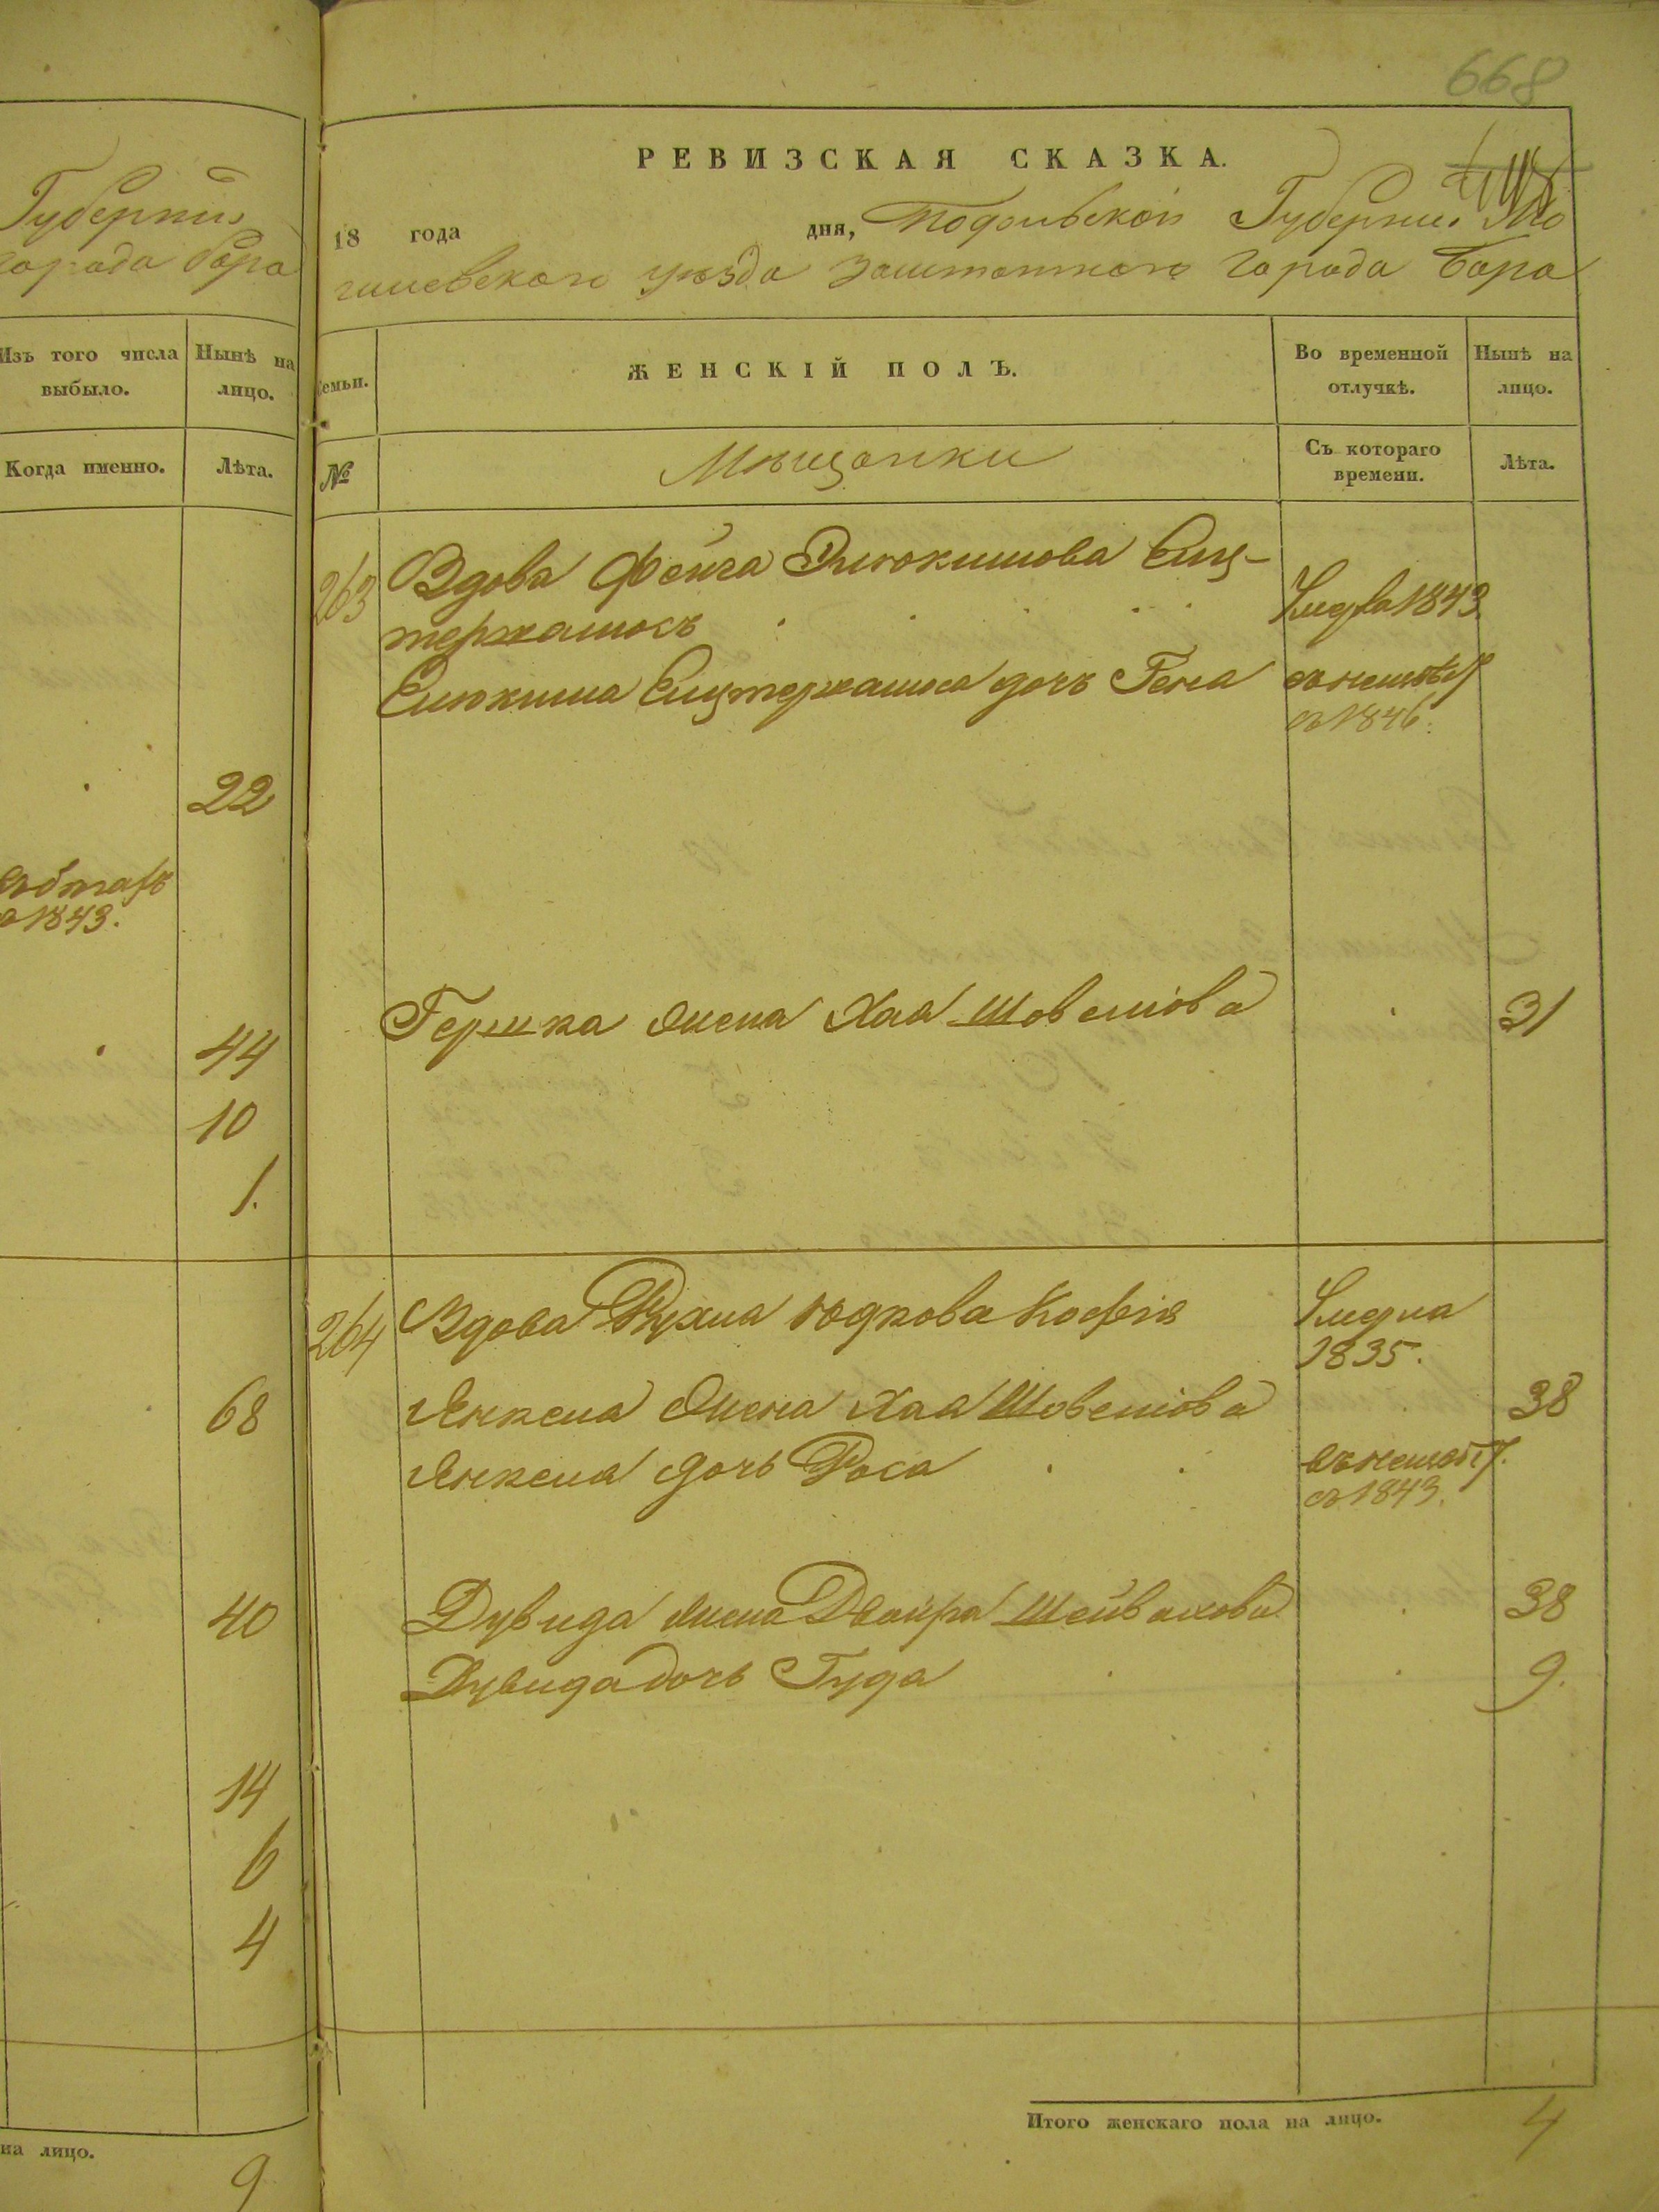 Губерніи
города бара
Изъ того числа выбыло.
Нынѣ на лицо.
Когда именно.
Лѣта.
22
въ 1843.
44
10
1.
68
40
14
6
4
на лицо.
9
668
РЕВИЗСКАЯ СКАЗКА.
18 года дня, Подольской Губерніи Мо
гилевскаго уѣзда заштатнаго города Бара
Семьи.
ЖЕНСКІЙ ПОЛЪ.
Во временной отлучкѣ.
Нынѣ на лицо.
№
Мѣщанки
Съ котораго времени.
Лѣта.
263 Вдова Фейга 1843
дочь Геня
въ 1846.
Гершка жена Хая Шовелiова 31
264 Вдова Рухля Юдкова
1835.
Янкеля жена Хая Шовелiова 38
Янкеля дочь Роса
въ 1843.
Дувида жена Двойра Шейвахова 38
Дувида дочь Гуда 9.
Итого женскаго пола на лицо. 4